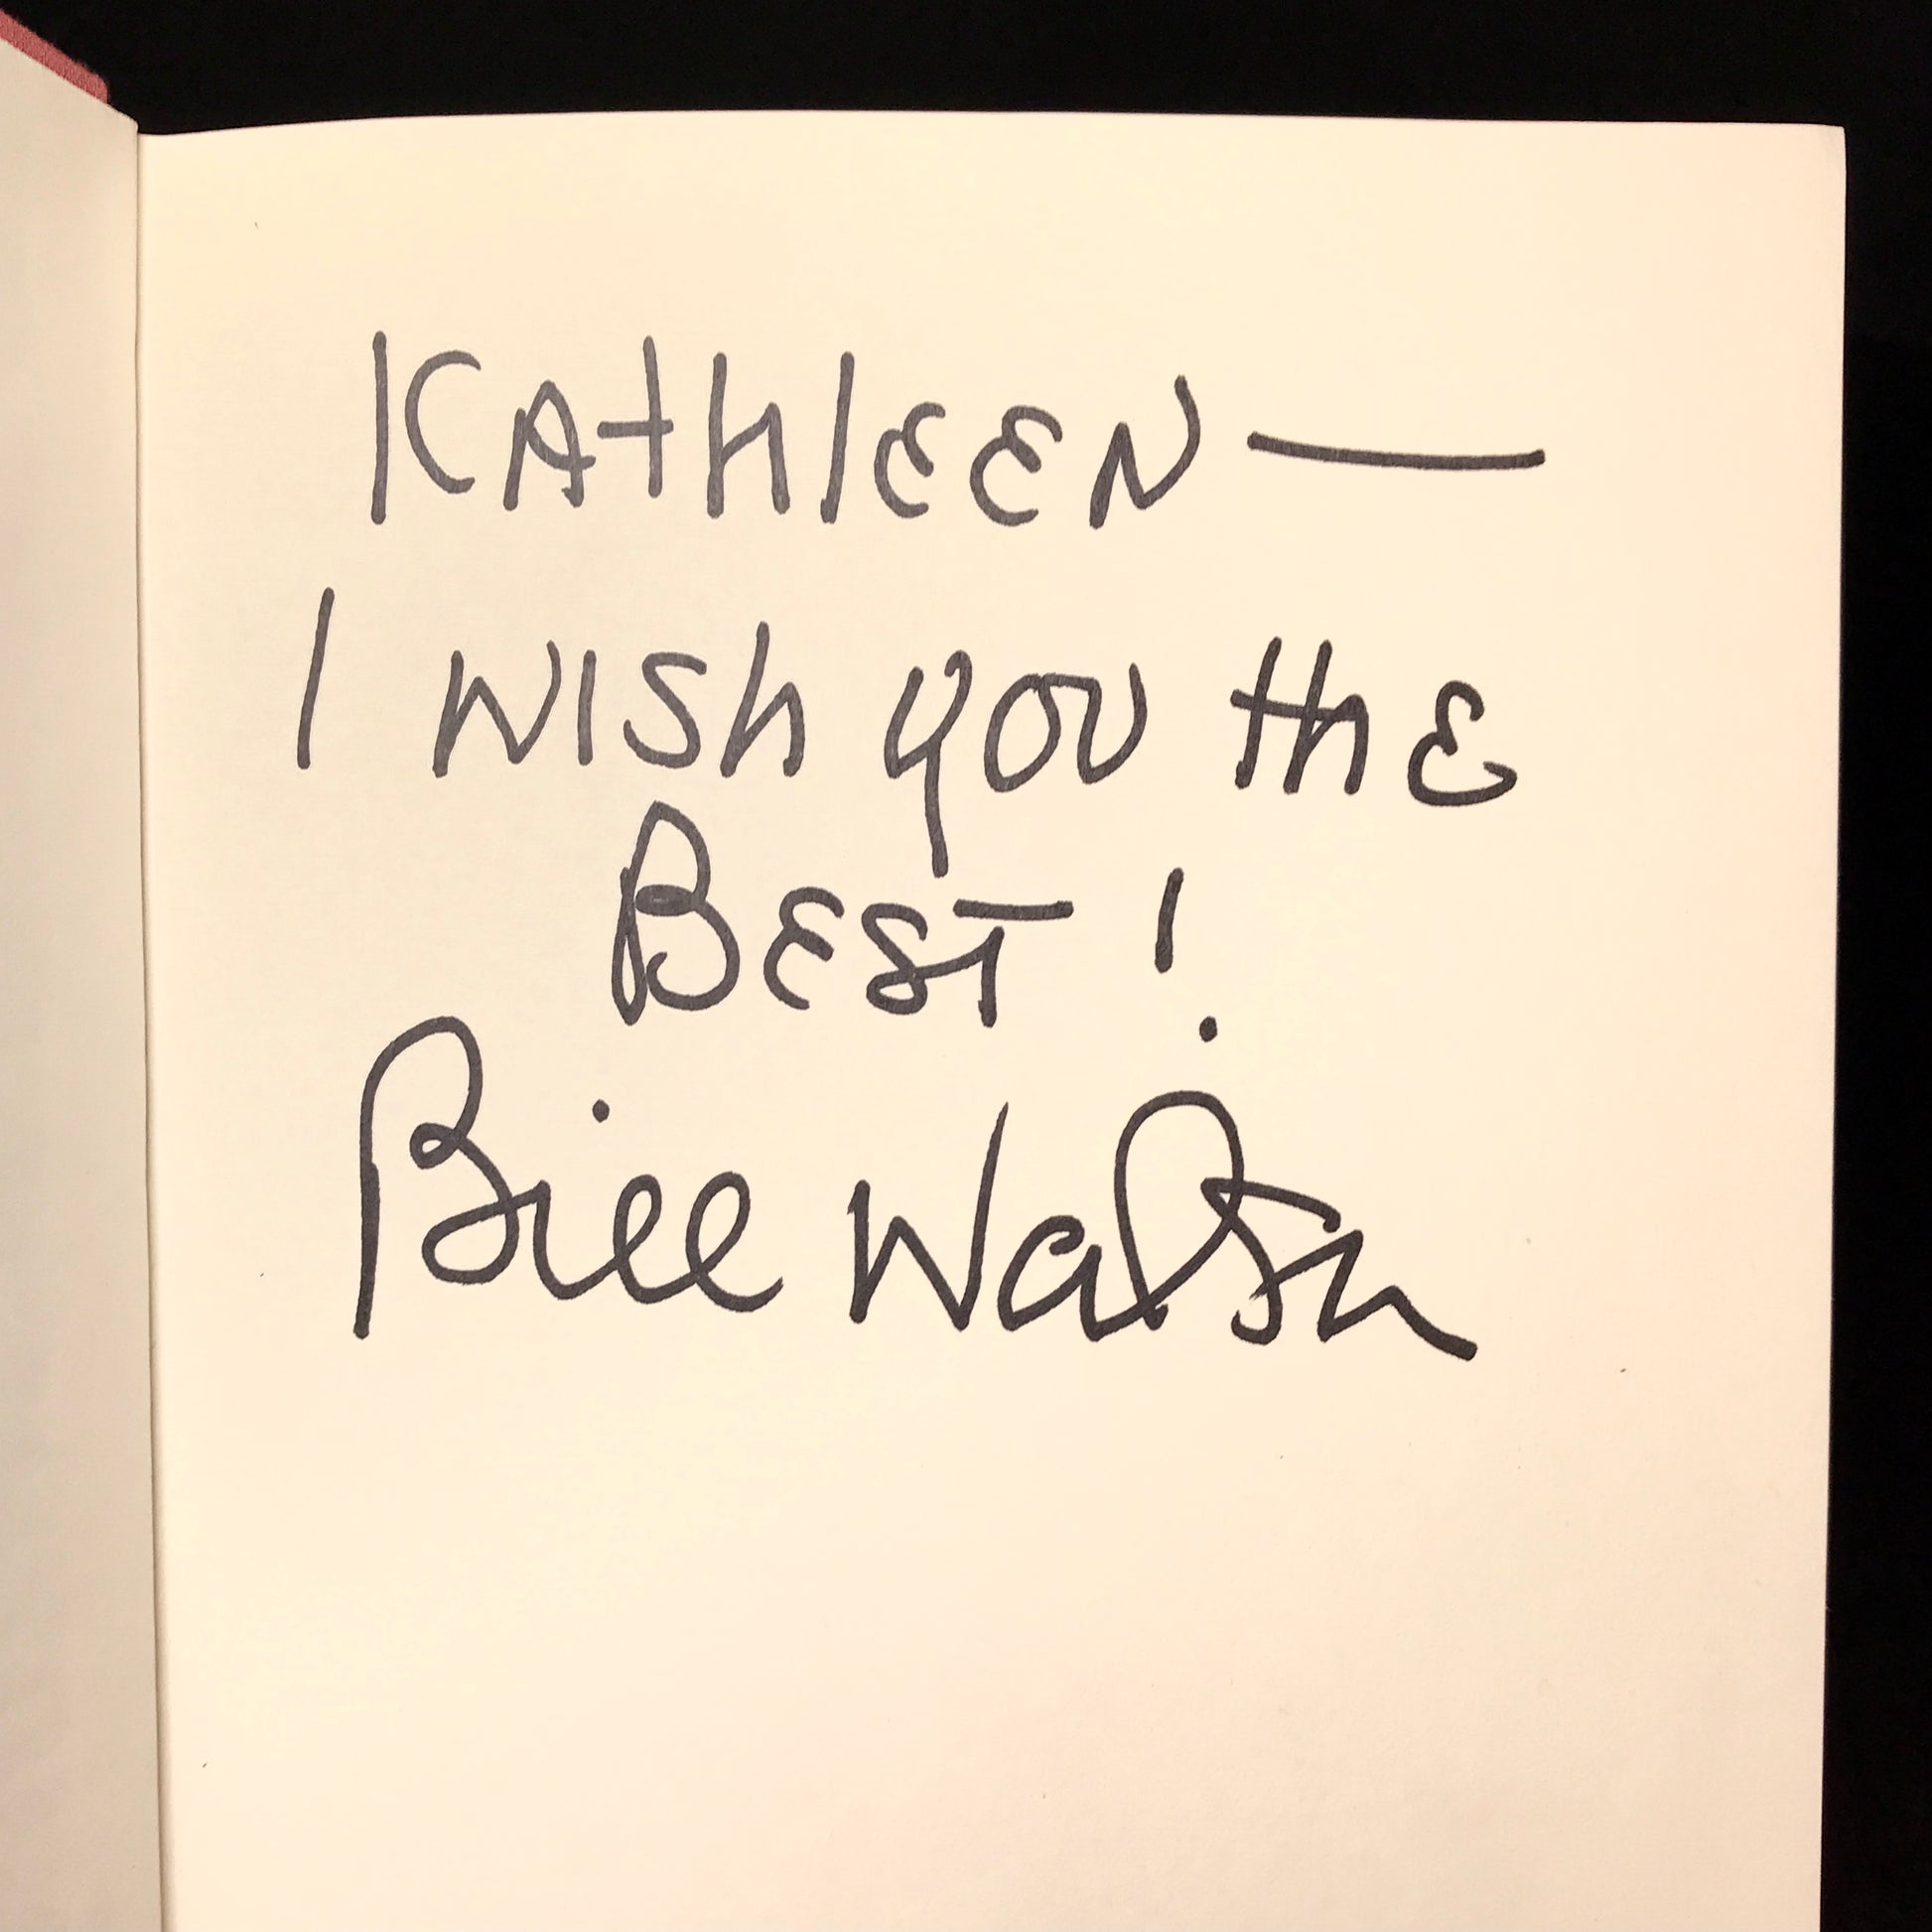 Kathleen —
I wish you the
Best!
Bill Walsh